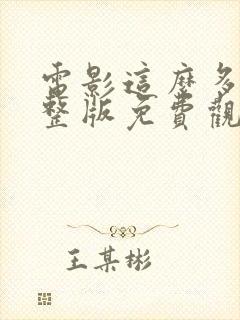 電影這麼多
整版免費觀
王某彬